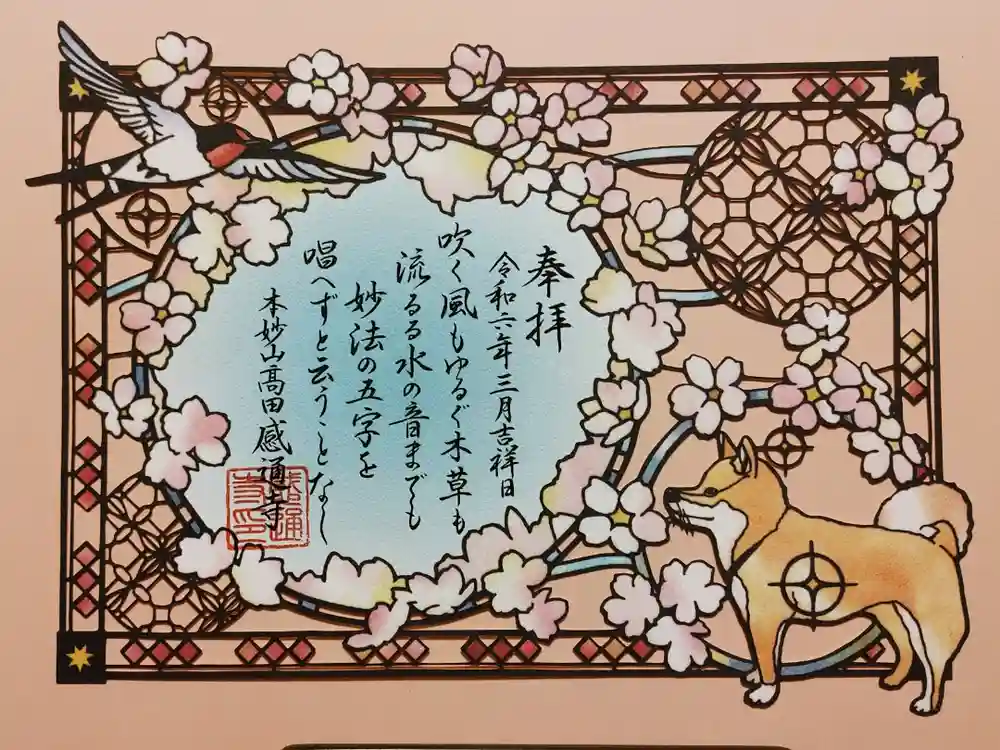 奉拝
令和六年三月吉祥日
吹く風もゆるぐ木草も
流るる水の音までも
妙法の五字を
唱へずと云うことなし
本妙山高田感通寺
感通
寺印